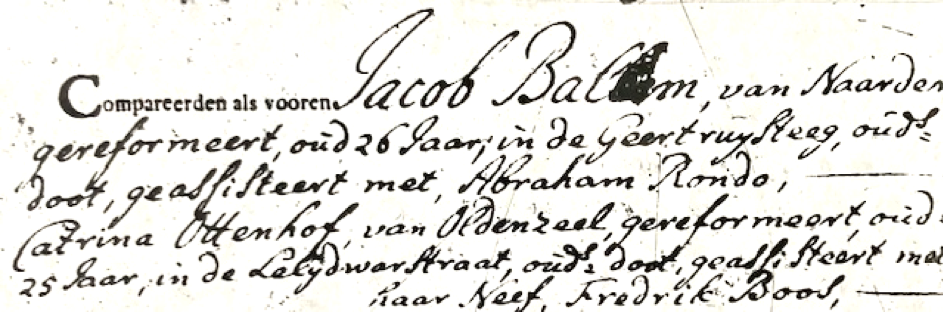 Compareerden als vooren Jacob van Naarden
gereformeert, oud 26 Jaar, in de Geertruysteeg, ouds=
doot, geassisteert met, Abraham Rondo,
Catrina Ottenhof, van Oldenzeel, gereformeert, oud
25 Jaar, in de Lelydwarstraat, ouds: doot, geassisteert met
haar Neef, Fredrik Boos,